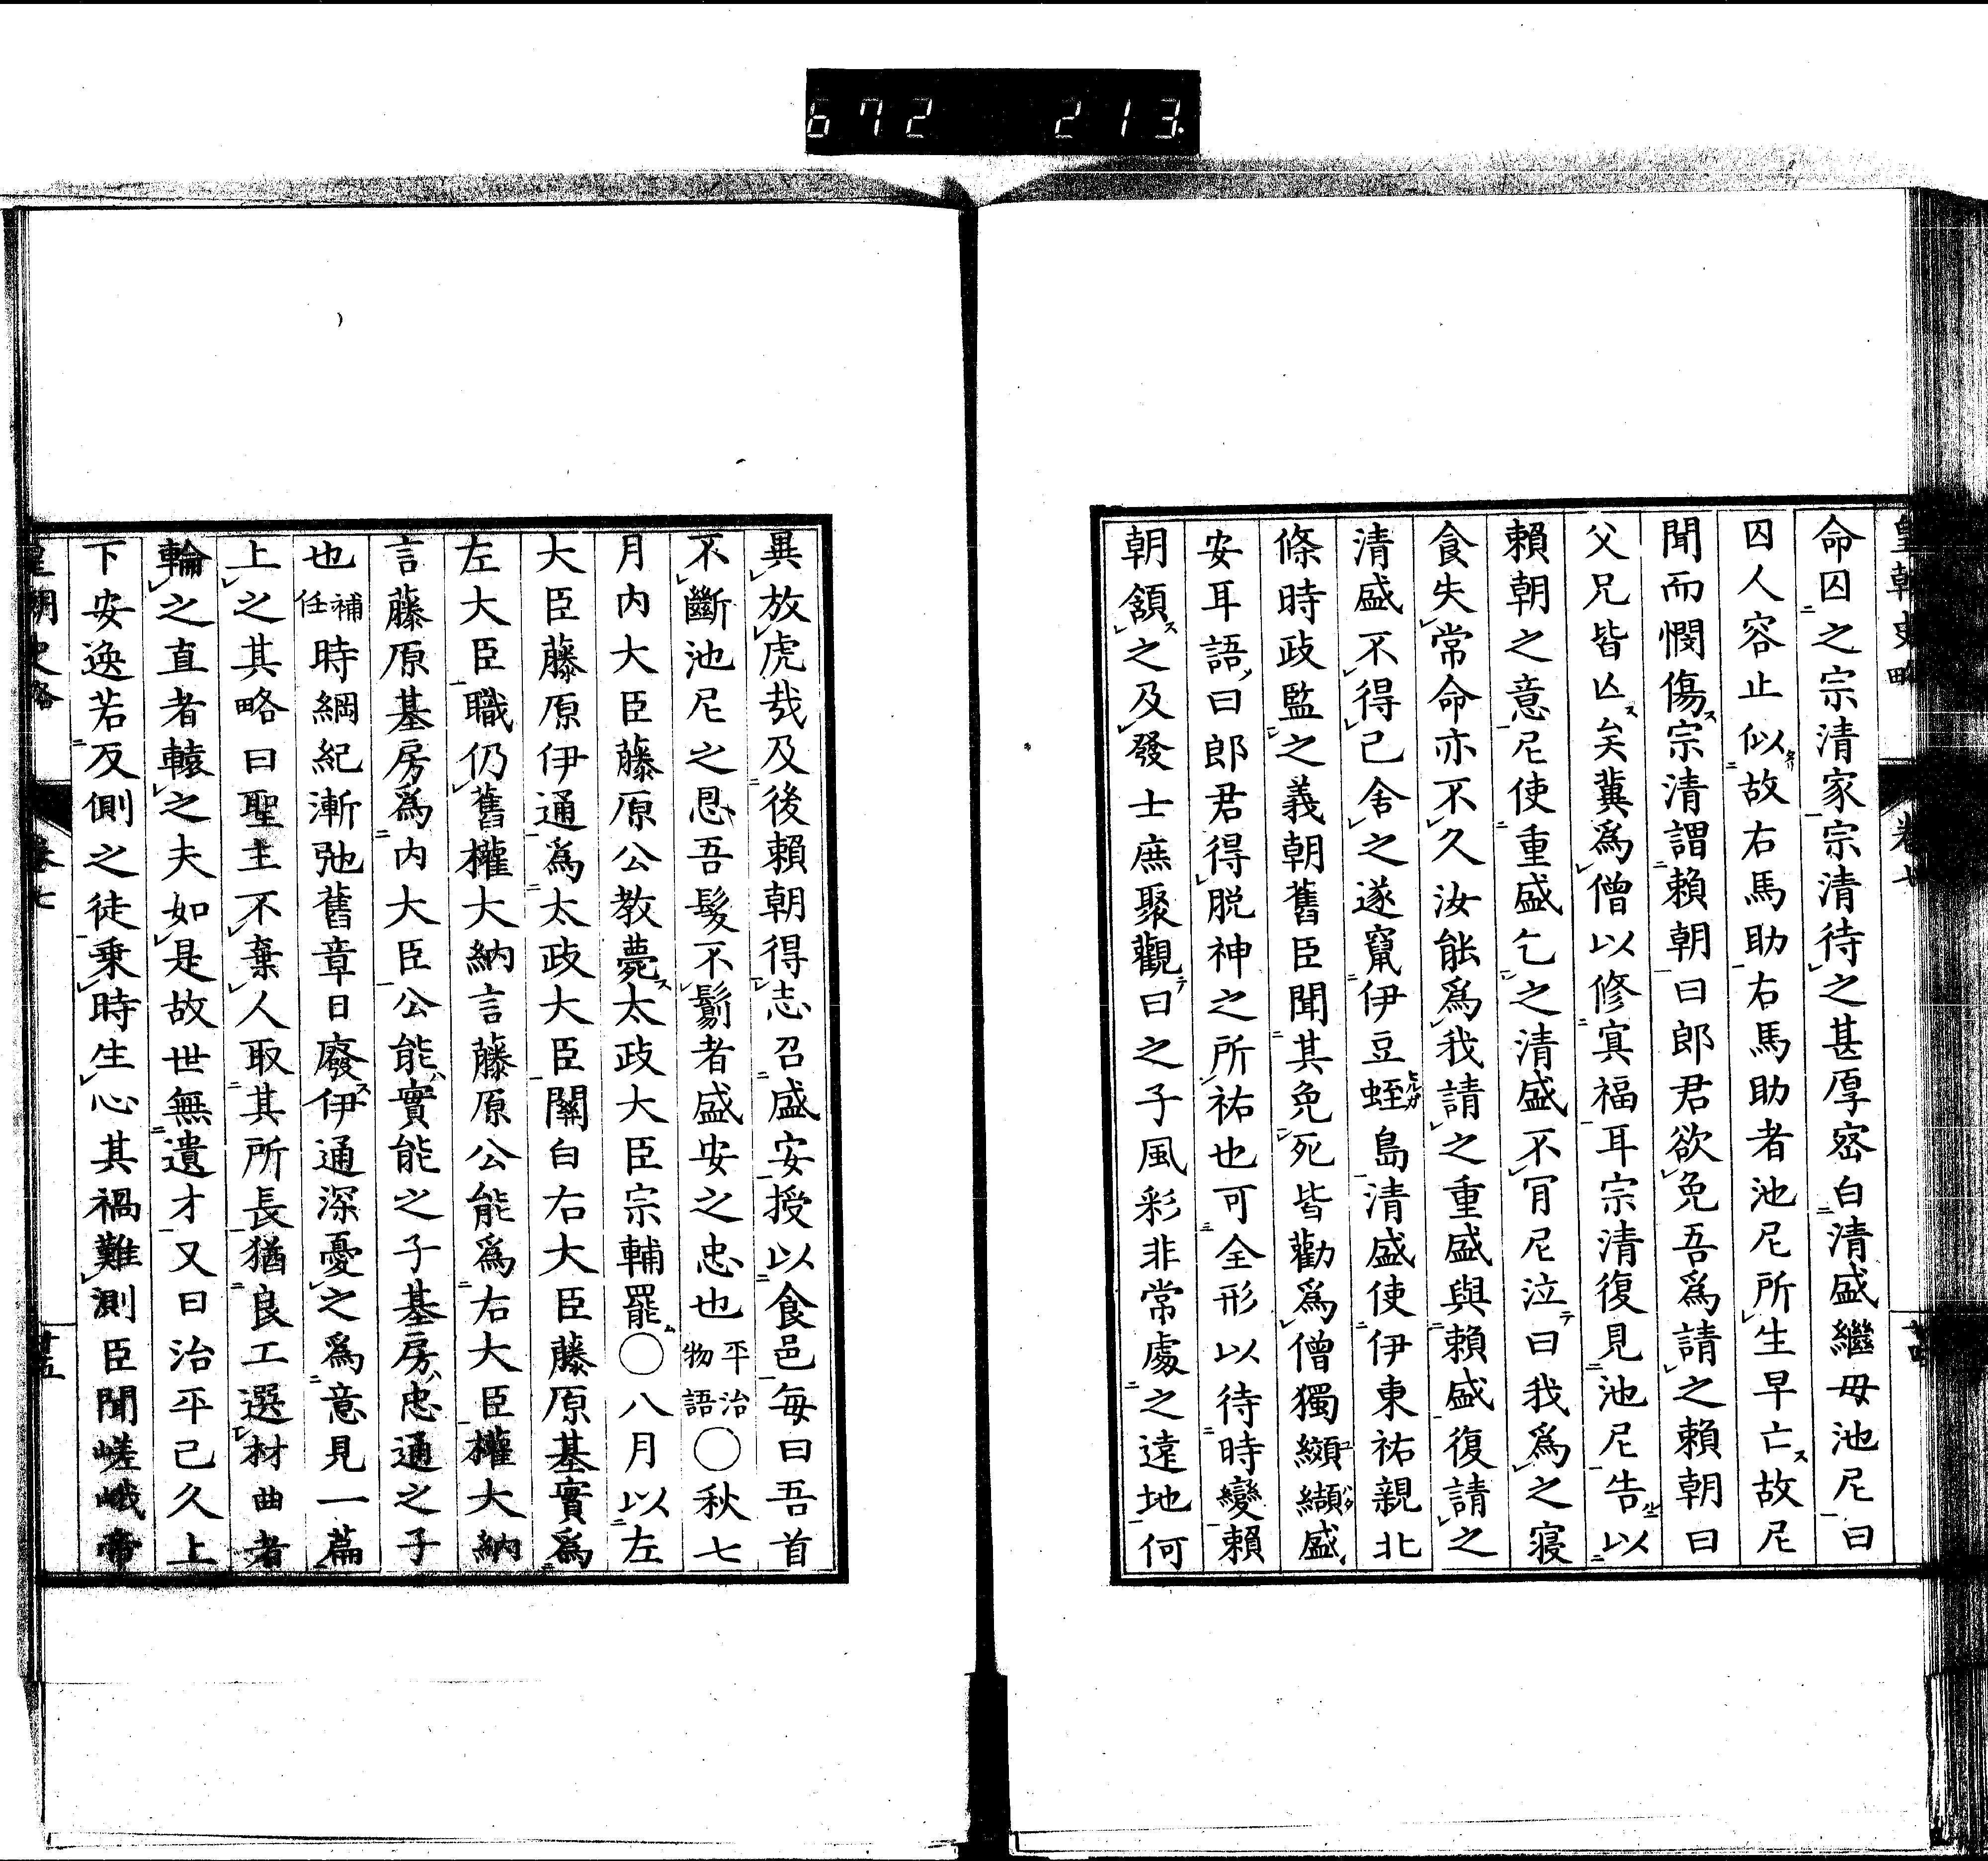 672 213
皇朝史略 卷七 廿四
命囚之宗清家宗清待之甚厚密白清盛繼母池尼曰
囚人容止似故右馬助右馬助者池尼所生早亡故尼
聞而憫傷宗清謂賴朝曰郎君欲免吾爲請之賴朝曰
父兄皆亾矣冀爲僧以修冥福耳宗清復見池尼告以
賴朝之意尼使重盛乞之清盛不肎尼泣曰我爲之寝
食失常命亦不久汝能爲我請之重盛與賴盛復請之
清盛不得已舍之遂竄伊豆蛭島清盛使伊東祐親北
條時政監之義朝舊臣聞其免死皆勸爲僧獨纐纈盛
安耳語曰郎君得脱神之所祐也可全形以待時變賴
朝頷之及發士庶聚觀曰之子風彩非常處之遠地何
異放虎哉及後賴朝得志召盛安授以食邑每曰吾首
不斷池尼之恩吾髮不鬀者盛安之忠也平治物語○秋七
月内大臣藤原公教薨太政大臣宗輔罷○八月以左
大臣藤原伊通爲太政大臣關白右大臣藤原基實爲
左大臣職仍舊權大納言藤原公能爲右大臣權大納
言藤原基房爲内大臣公能實能之子基房忠通之子
也補任時綱紀漸弛舊章日廢伊通深憂之爲意見一篇
上之其略曰聖主不棄人取其所長猶良工選材曲者
輪之直者轅之夫如是故世無遺才又曰治平已久上
下安逸若反側之徒乗時生心其禍難測臣聞嵯峨帝
皇朝史略 卷七 廿五